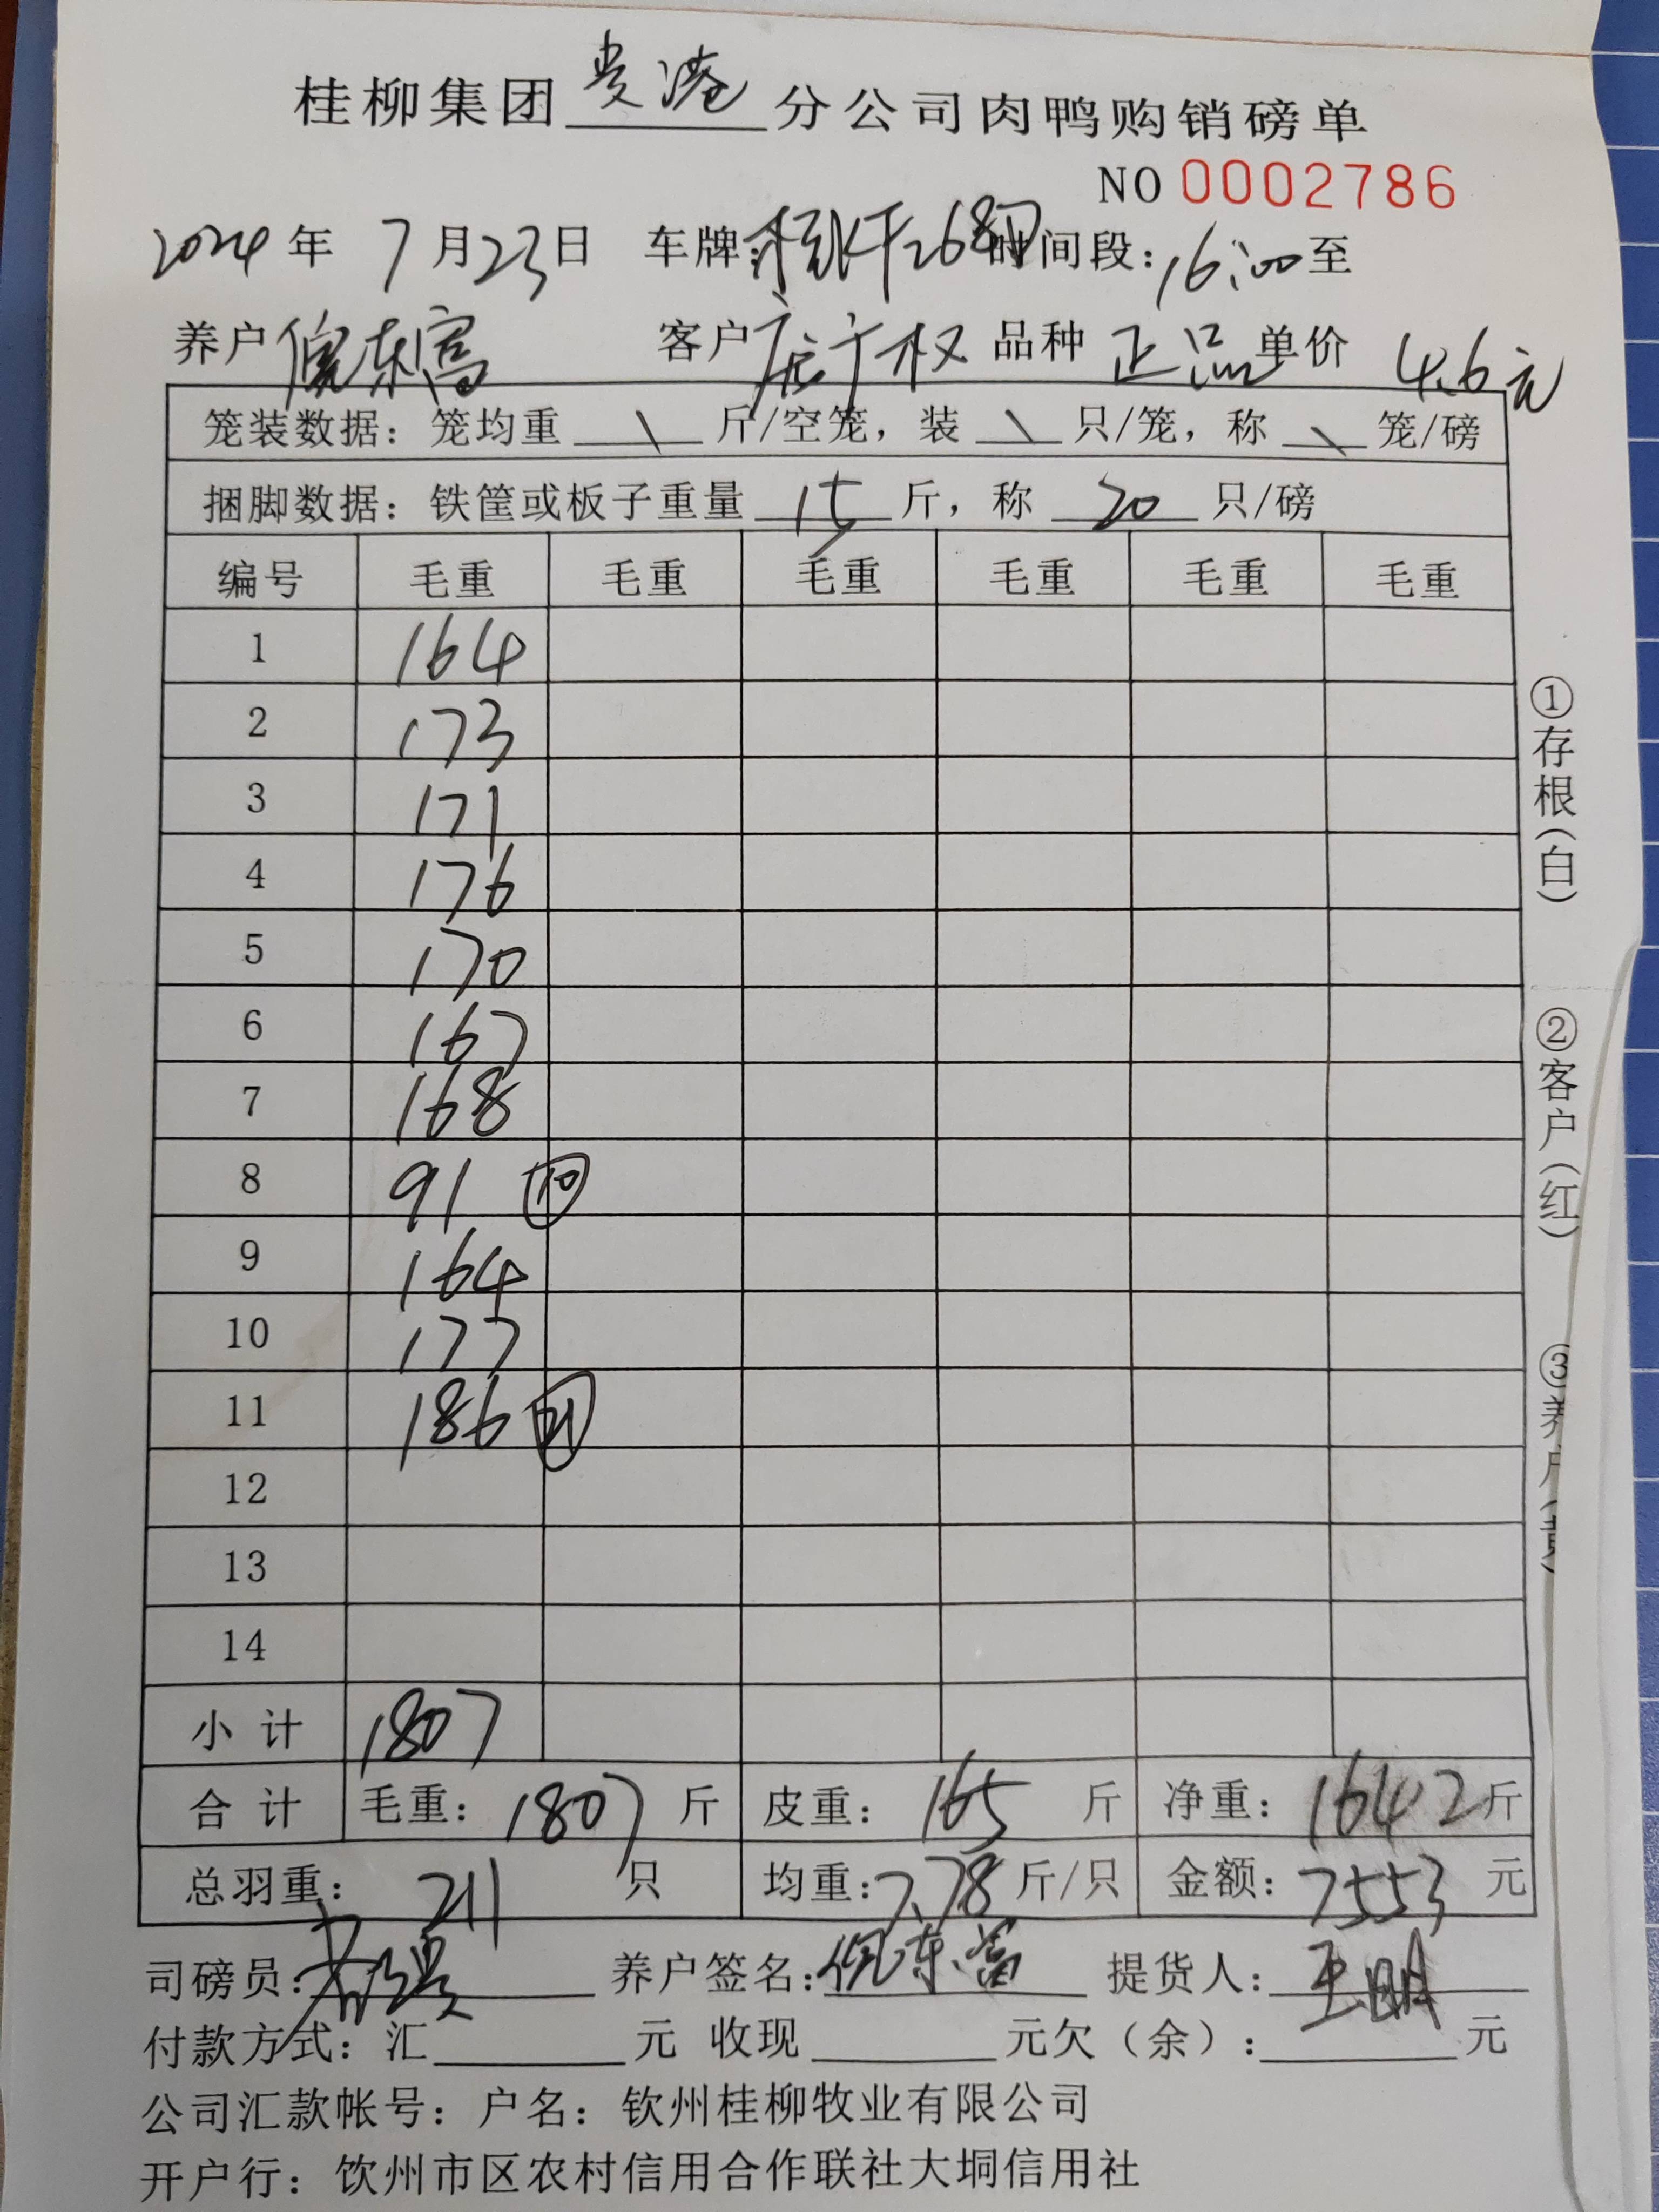 桂柳集团贵港分公司肉鸭购销磅单
NO 0002786
2024年 7月23日 车牌: 时间段:16:00至
养户倪东富 客户 广权 品种 正品 单价 4.6元
笼装数据: 笼均重 \ 斤/空笼, 装 \ 只/笼, 称 \ 笼/磅
捆脚数据: 铁筐或板子重量 15 斤, 称 20 只/磅
编号 毛重 毛重 毛重 毛重 毛重 毛重
1 164
2 173
3 171
4 176
5 170
6 167
7 168
8 91 ⑩
9 164
10 177
11 186 ㉑
12
13
14
小计 1807
合计 毛重: 1807 斤 皮重: 165 斤 净重: 1642斤
总羽重: 211 只 均重:7.78斤/只 金额: 7553 元
司磅员: 养户签名:倪东富 提货人: 王明
付款方式: 汇 元 收现 元欠(余): 元
公司汇款帐号: 户名: 钦州桂柳牧业有限公司
开户行: 饮州市区农村信用合作联社大垌信用社
①存根(白)
②客户(红)
③养户(黄)